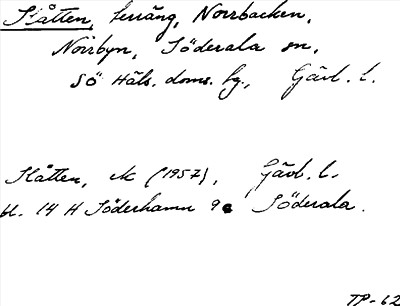 Slåtten, terräng, Norrbacken,
Norrbyn, Söderala sn,
Sö Häls. doms. hg., Gävl. l.
Slåtten, ek (1957), Gävl. l.
bl. 14 H Söderhamn 9 c Söderala.
TP-62